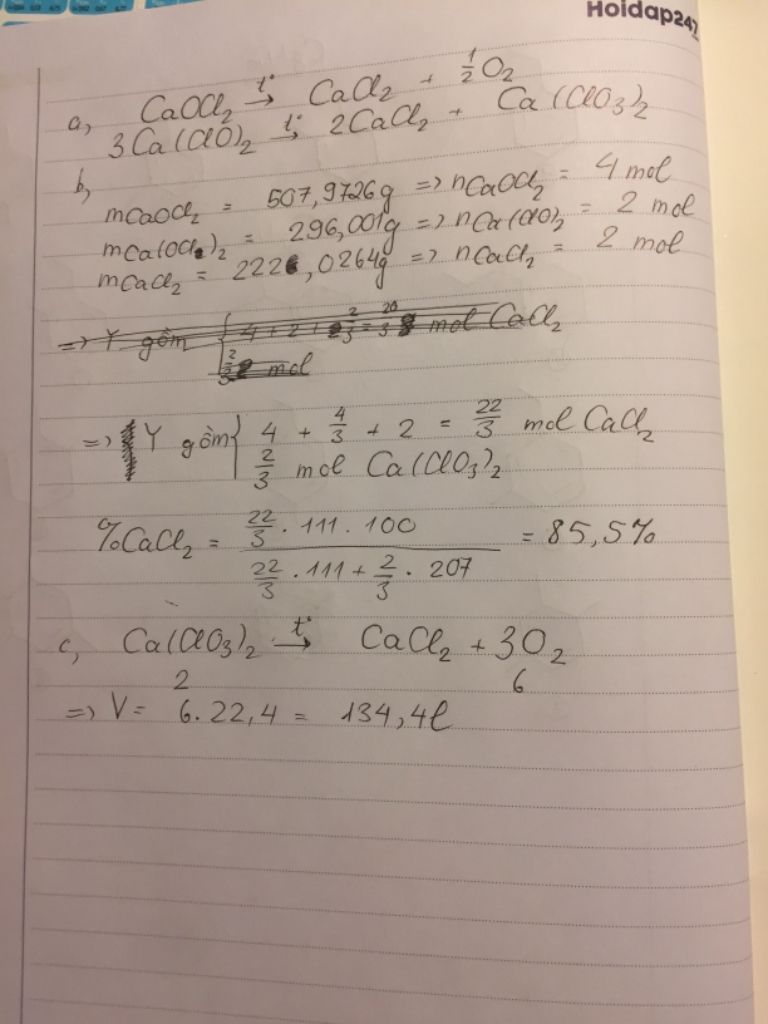 Hoidap247
a, CaOCl₂ →(t°) CaCl₂ + 1/2 O₂
3Ca(ClO)₂ →(t°) 2CaCl₂ + Ca(ClO₃)₂
b,
mCaOCl₂ = 507,9726g => nCaOCl₂ = 4 mol
mCa(OCl)₂ = 296,001g => nCa(ClO)₂ = 2 mol
mCaCl₂ = 222,0264g => nCaCl₂ = 2 mol
=> Y gồm { 4 + 2 + 2/3 = 20/3 mol CaCl₂
2/3 mol
=> Y gồm { 4 + 4/3 + 2 = 22/3 mol CaCl₂
2/3 mol Ca(ClO₃)₂
%CaCl₂ = 22/3 . 111 . 100 / 22/3 . 111 + 2/3 . 207 = 85,5%
c, Ca(ClO₃)₂ →(t°) CaCl₂ + 3O₂
2 6
=> V = 6.22,4 = 134,4l